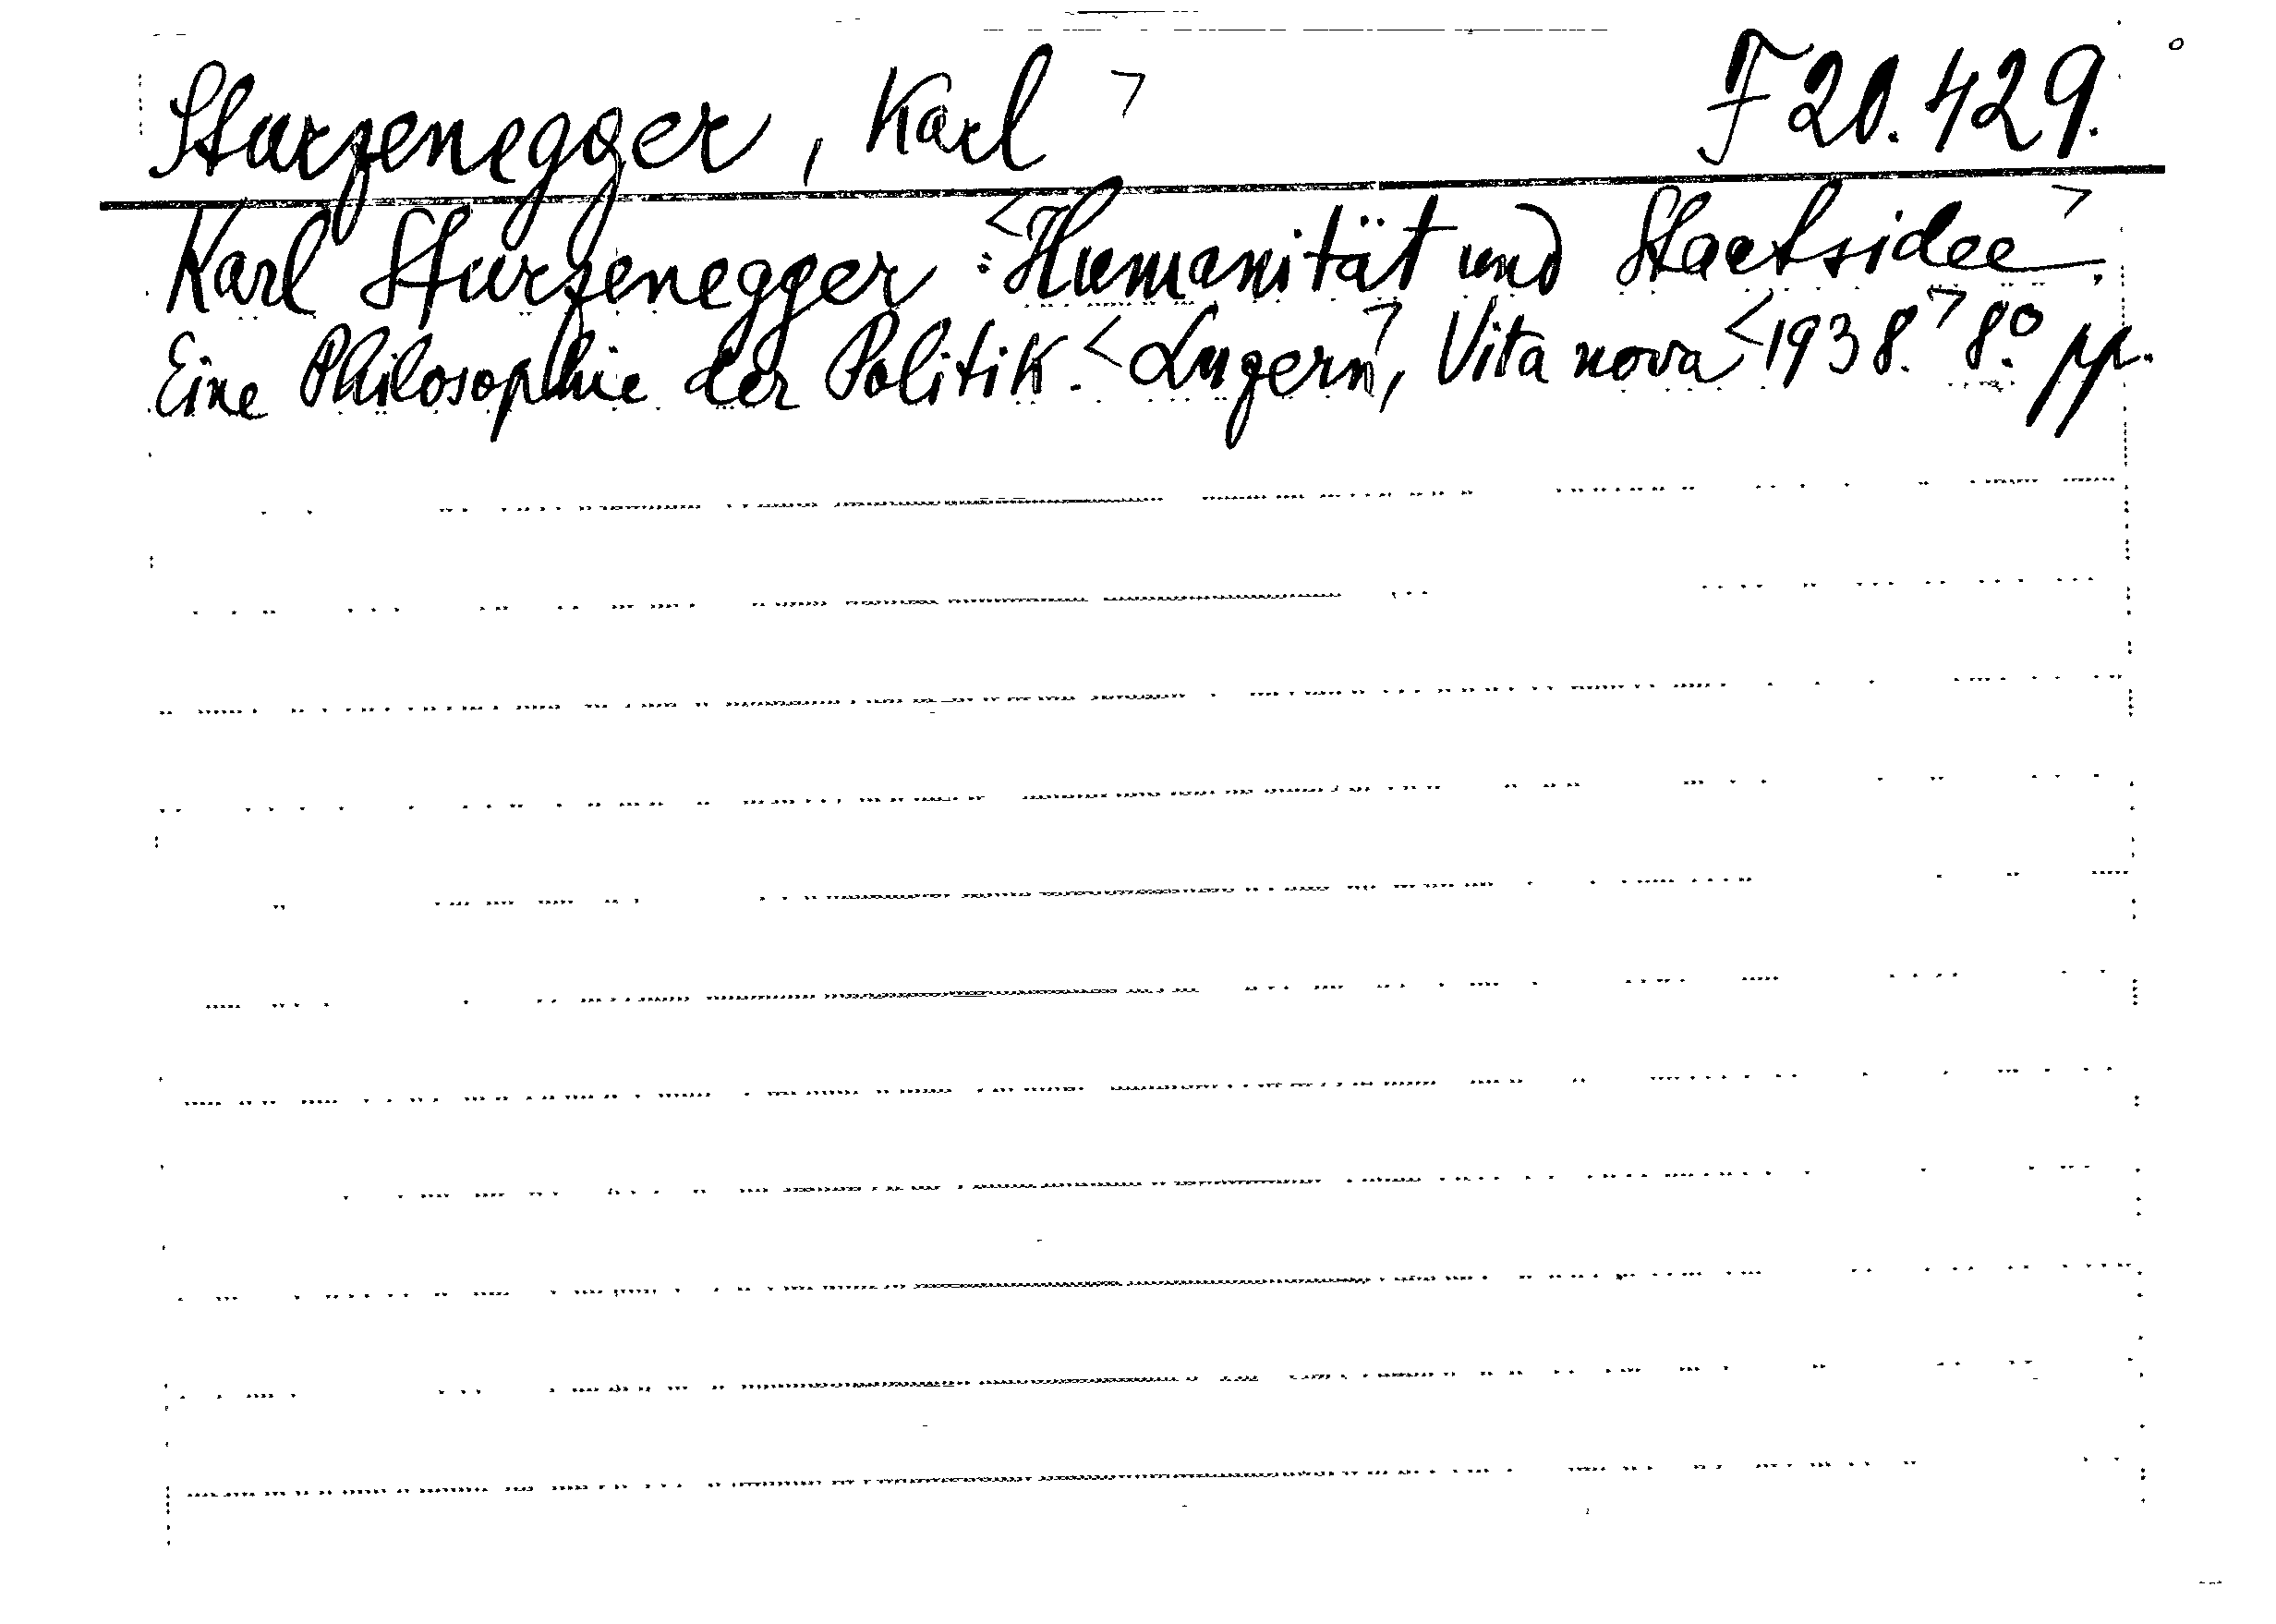 Sturzenegger, Karl ㄱ F 20.429.
Karl Sturzenegger: <Humanität und Staatsidee>.
Eine Philosophie der Politik. <Luzern>, Vita nova <1938.> 8.° pp.